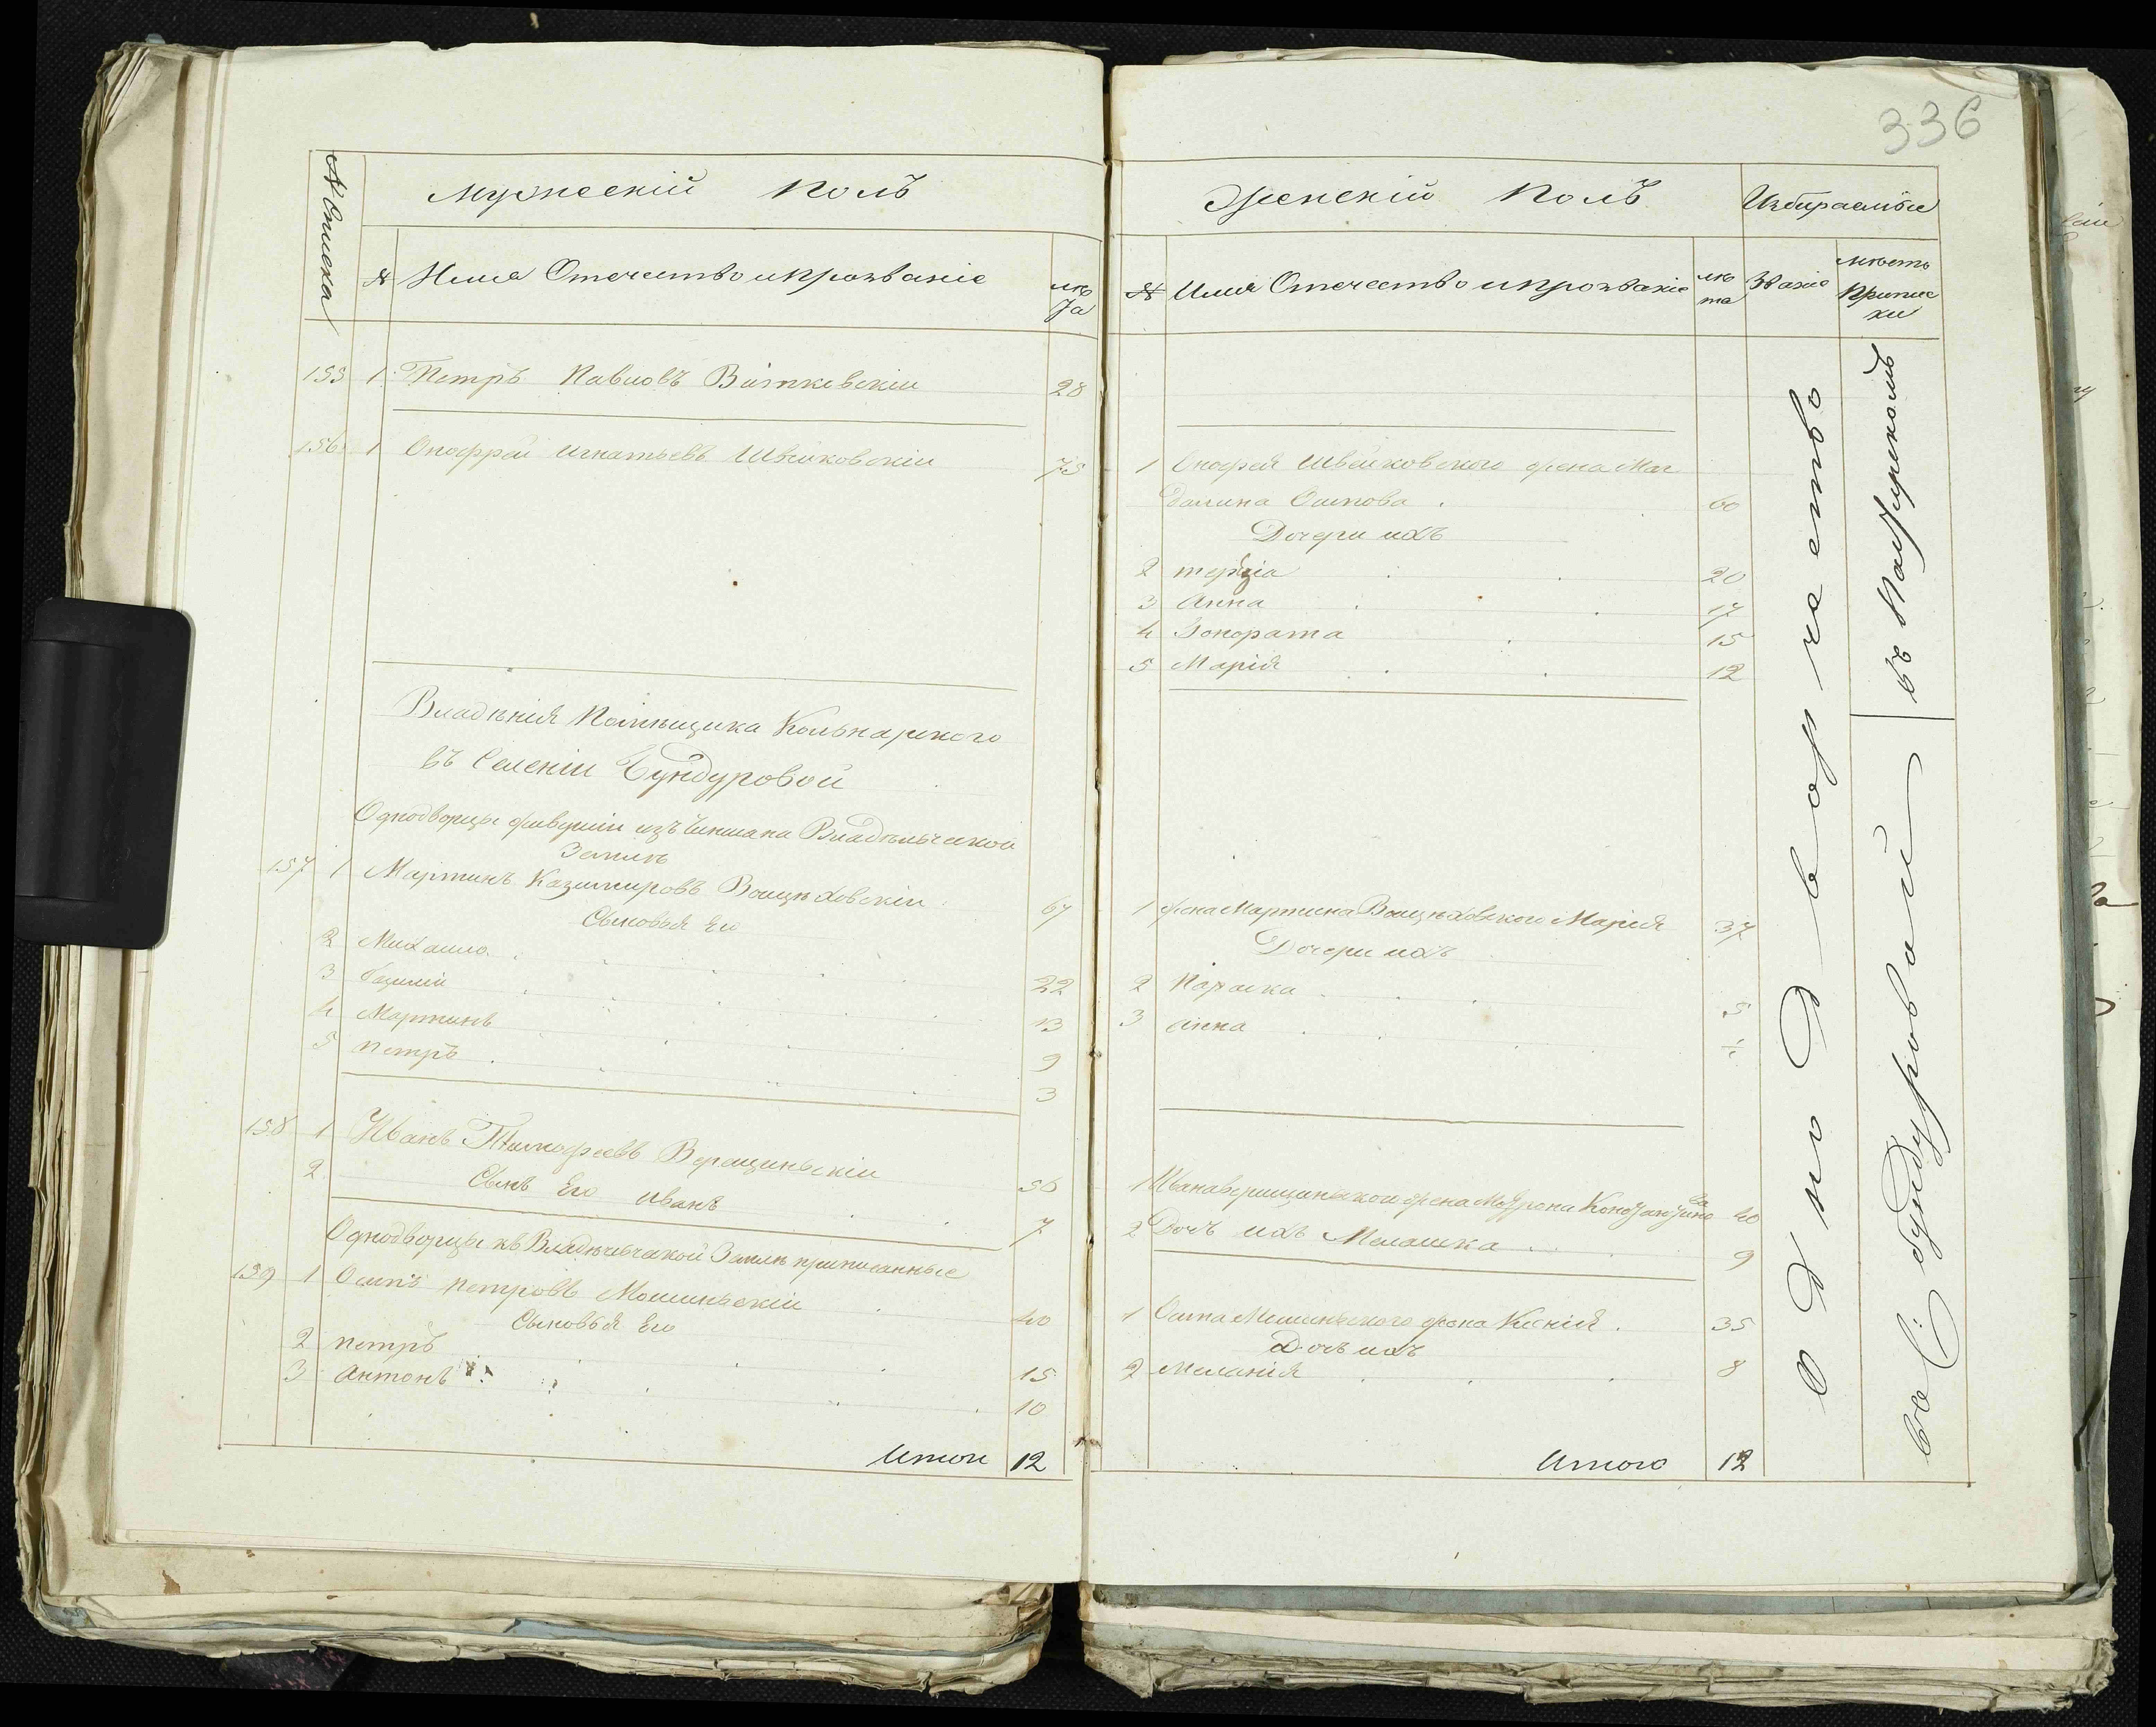 336
№ Списка
Мужескій Полъ
№ Имя Отечество и прозваніе лѣта
155 1 Петръ Павловъ Витковскіи 28
156 1 Онофрей Игнатьевъ Швейковскіи 75
Владѣнія Помѣщика
въ Селеніи Бундуровой
Однодворцы живущіи изъ чинша на Владѣльческой
Землѣ
157 1 Мартинъ Казимировъ Воицѣховскіи 67
Сыновья Его
2 Михаило 22
3 Базилій 13
4 Мартинъ 9
5 петръ 3
158 1 Иванъ Тимофеевъ Верещинскіи 56
2 Сынъ Его Иванъ 7
Однодворцы къ Владѣльческой Землѣ приписанные
159 1 Осипъ петровъ Мошинскіи 40
Сыновья Его
2 петръ 15
3 антонъ 10
Итого 12
Женскій Полъ
Избираемые
№ Имя Отечество и прозваніе лѣта Званіе мѣсто приписки
1 Онофрея Швейковского жена Маг
далина Осипова 60
Дочери ихъ
2 терезіа 20
3 Анна 17
4 Гонората 15
5 Марія 12
1 жена Мартина Воицѣховского Марія 37
Дочери ихъ
2 Параска 5
3 анна
1 Ивана Верищинского жена Мотрона Константинова 40
2 Дочь ихъ Мелашка 9
1 Осипа Мошинского жена Ксенія 35
Дочь ихъ
2 Меланія 8
Итого 12
однодворчество
въ
во С: бундуровой